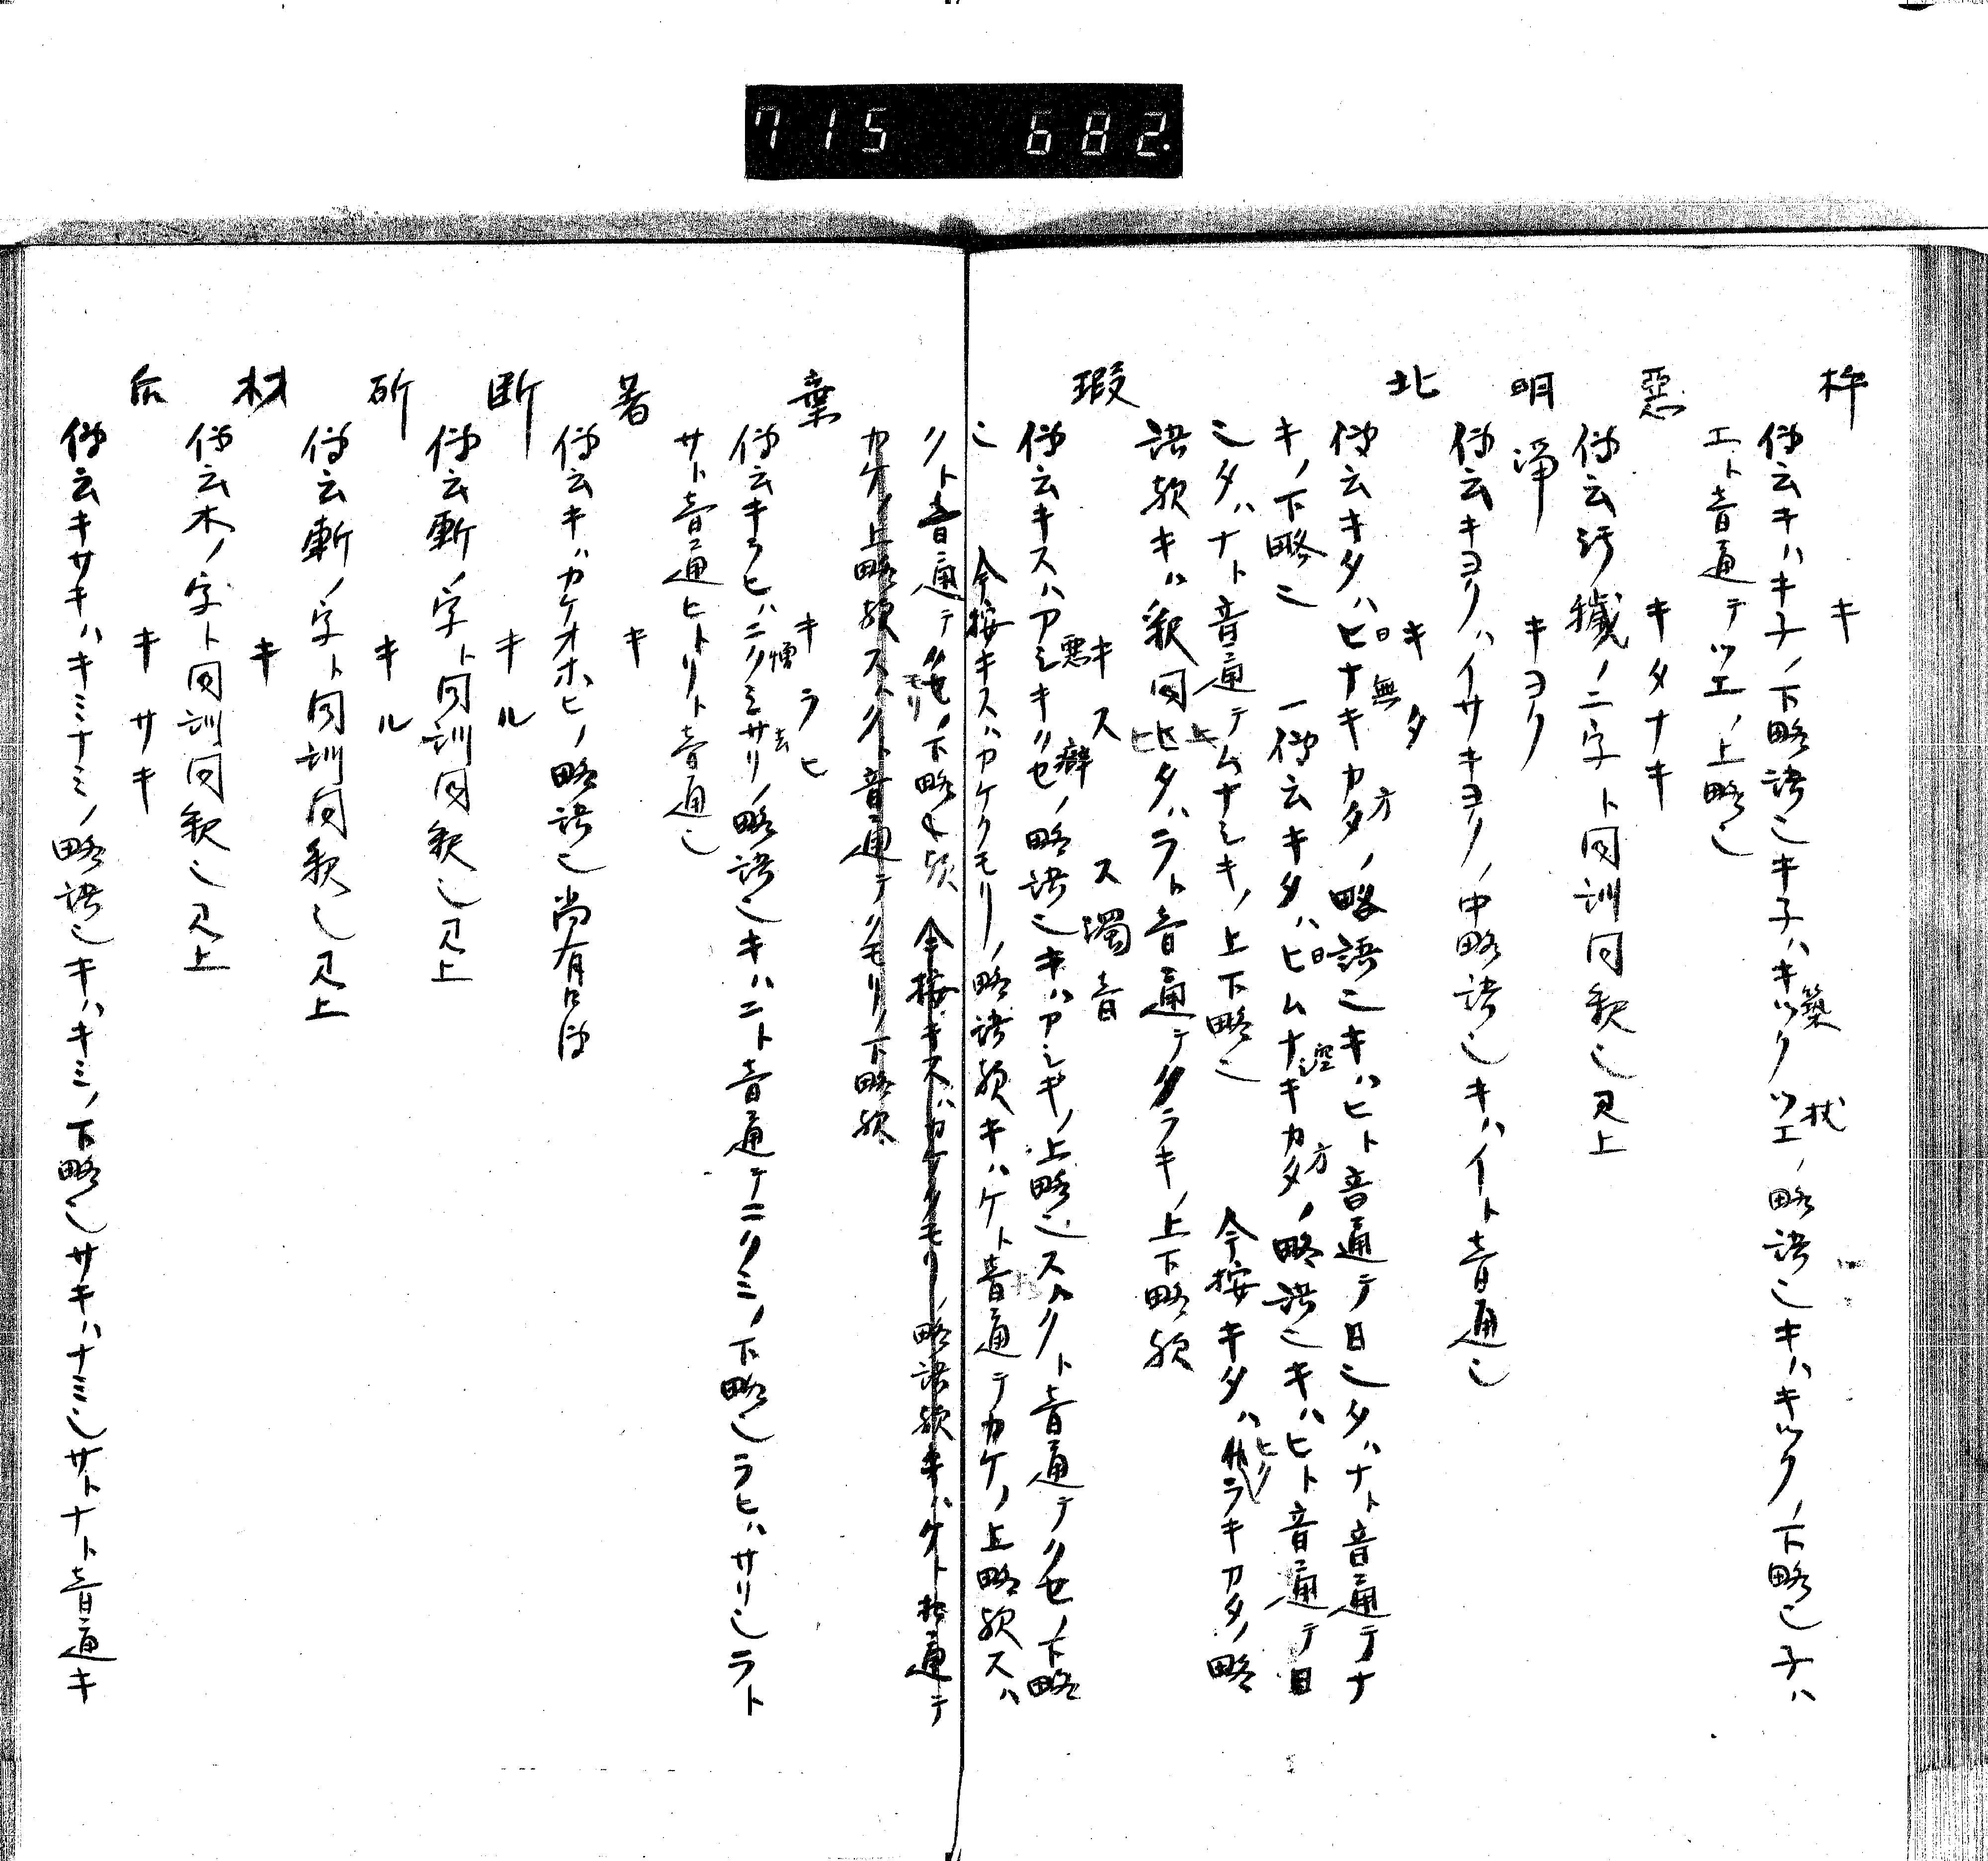 715 682.
杵 キ
伝云キハキ子ノ下略語也キ子ハキツク築ツエ杖ノ略語也キハキツクノ下略也子ハ
エト音通テツエノ上略也
惡 キタナキ
伝云汚穢ノ二字ト同訓同釈也見上
明 浄 キヨク
伝云キヨクハイサキヨクノ中略語也キハイト音通也
北 キタ
伝云キタハヒナキカタ日無方ノ略語也キハヒト音通テ日也タハナト音通テナ
キノ下略也 一伝云キタハヒムナシキカタ日空方ノ略語也キハヒト音通テ日
也タハナト音通テムナシキノ上下略也 今按キタハヒクラキカタノ略
語欤キハ釈同上タハラト音通テクラキノ上下略欤
瑕 キス ス濁音
伝云キスハアシキクセ惡癖ノ略語也キハアシキノ上略也スハクト音通テクセノ下略
也 今按キスハカケクモリノ略語欤キハケト音通テカケノ上略欤スハ
クト音通テクモリノ下略欤 今按キスハカケクモリノ略語欤キハケト音通テ
カケノ上略欤スハクト音通テクモリノ下略欤
棄 キラヒ
伝云キラヒハニクミサリ憎去ノ略語也キハニト音通テニクミノ下略也ラヒハサリ也ラト
サト音通ヒトリト音通也
著 キ
伝云キハカケオホヒノ略語也尚有口伝
断 キル
伝云斬ノ字ト同訓同釈也見上
斫 キル
伝云斬ノ字ト同訓同釈也見上
材 キ
伝云木ノ字ト同訓同釈也見上
后 キサキ
伝云キサキハキミナミノ略語也キハキミノ下略也サキハナミ也サトナト音通キ